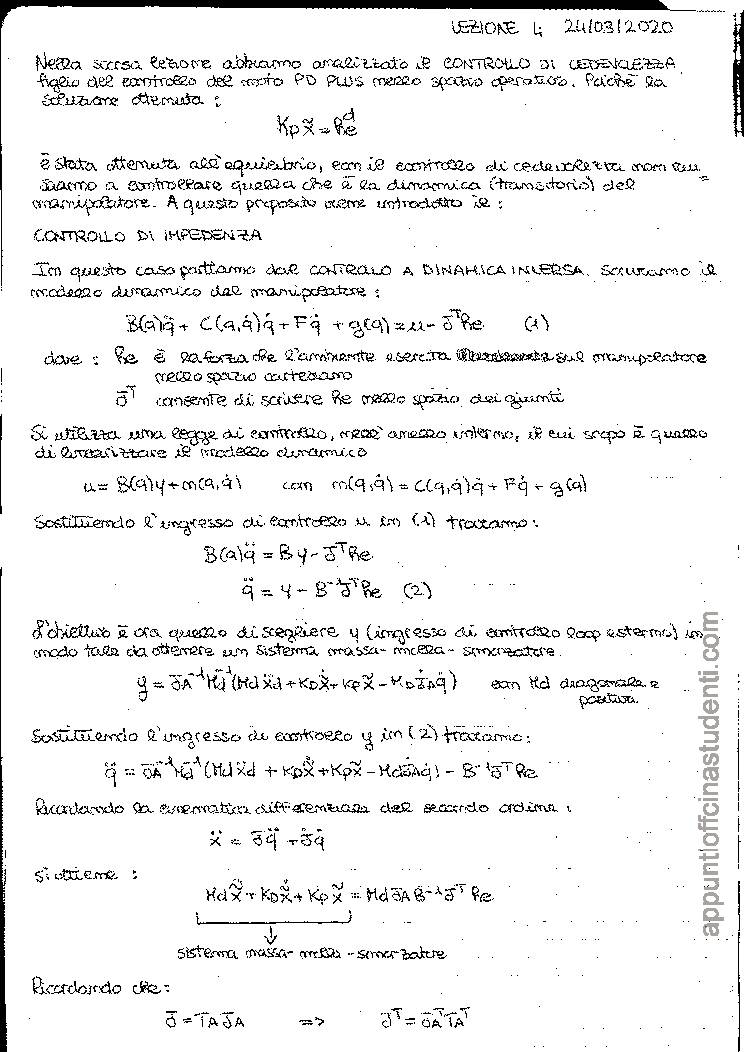 LEZIONE 4 24/03/2020
Nella scorsa lezione abbiamo analizzato il CONTROLLO DI CEDEVOLEZZA
figlio del controllo del moto PD PLUS nello spazio operativo. Poiché la
soluzione ottenuta :
Kp x̃ = he^d
è stata ottenuta all'equilibrio, con il controllo di cedevolezza non riu
=sciamo a controllare quella che è la dinamica (transitorio) del
manipolatore. A questo proposito viene introdotto il :
CONTROLLO DI IMPEDENZA
In questo caso partiamo dal CONTROLLO A DINAMICA INVERSA. Scriviamo il
modello dinamico del manipolatore :
B(q)q̈ + C(q,q̇)q̇ + Fq̇ + g(q) = u - J^T he (1)
dove : he è la forza che l'ambiente esercita sul manipolatore
nello spazio cartesiano
J^T consente di scrivere he nello spazio dei giunti
Si utilizza una legge di controllo, nell'anello interno, il cui scopo è quello
di linearizzare il modello dinamico
u = B(q)y + n(q,q̇) con n(q,q̇) = C(q,q̇)q̇ + Fq̇ + g(q)
Sostituendo l'ingresso di controllo u in (1) troviamo :
B(q)q̈ = By - J^T he
q̈ = y - B^-1 J^T he (2)
L'obiettivo è ora quello di scegliere y (ingresso di controllo loop esterno) in
modo tale da ottenere un sistema massa - molla - smorzatore.
y = JA^-1 Md^-1 (Md ẍd + KD x̃̇ + Kp x̃ - MD J̇A q̇) con Md diagonale e
positiva.
Sostituendo l'ingresso di controllo y in (2) troviamo :
q̈ = JA^-1 Md^-1 (Md ẍd + KD x̃̇ + Kp x̃ - Md J̇A q̇) - B^-1 J^T he
Ricordando la cinematica differenziale del secondo ordine :
ẍ = J q̈ + J̇ q̇
Si ottiene :
Md x̃̈ + KD x̃̇ + Kp x̃ = Md JA B^-1 J^T he
sistema massa - molla - smorzatore
Ricordando che :
J = TA JA => J^T = JA^T TA^T
appuntiofficinastudenti.com